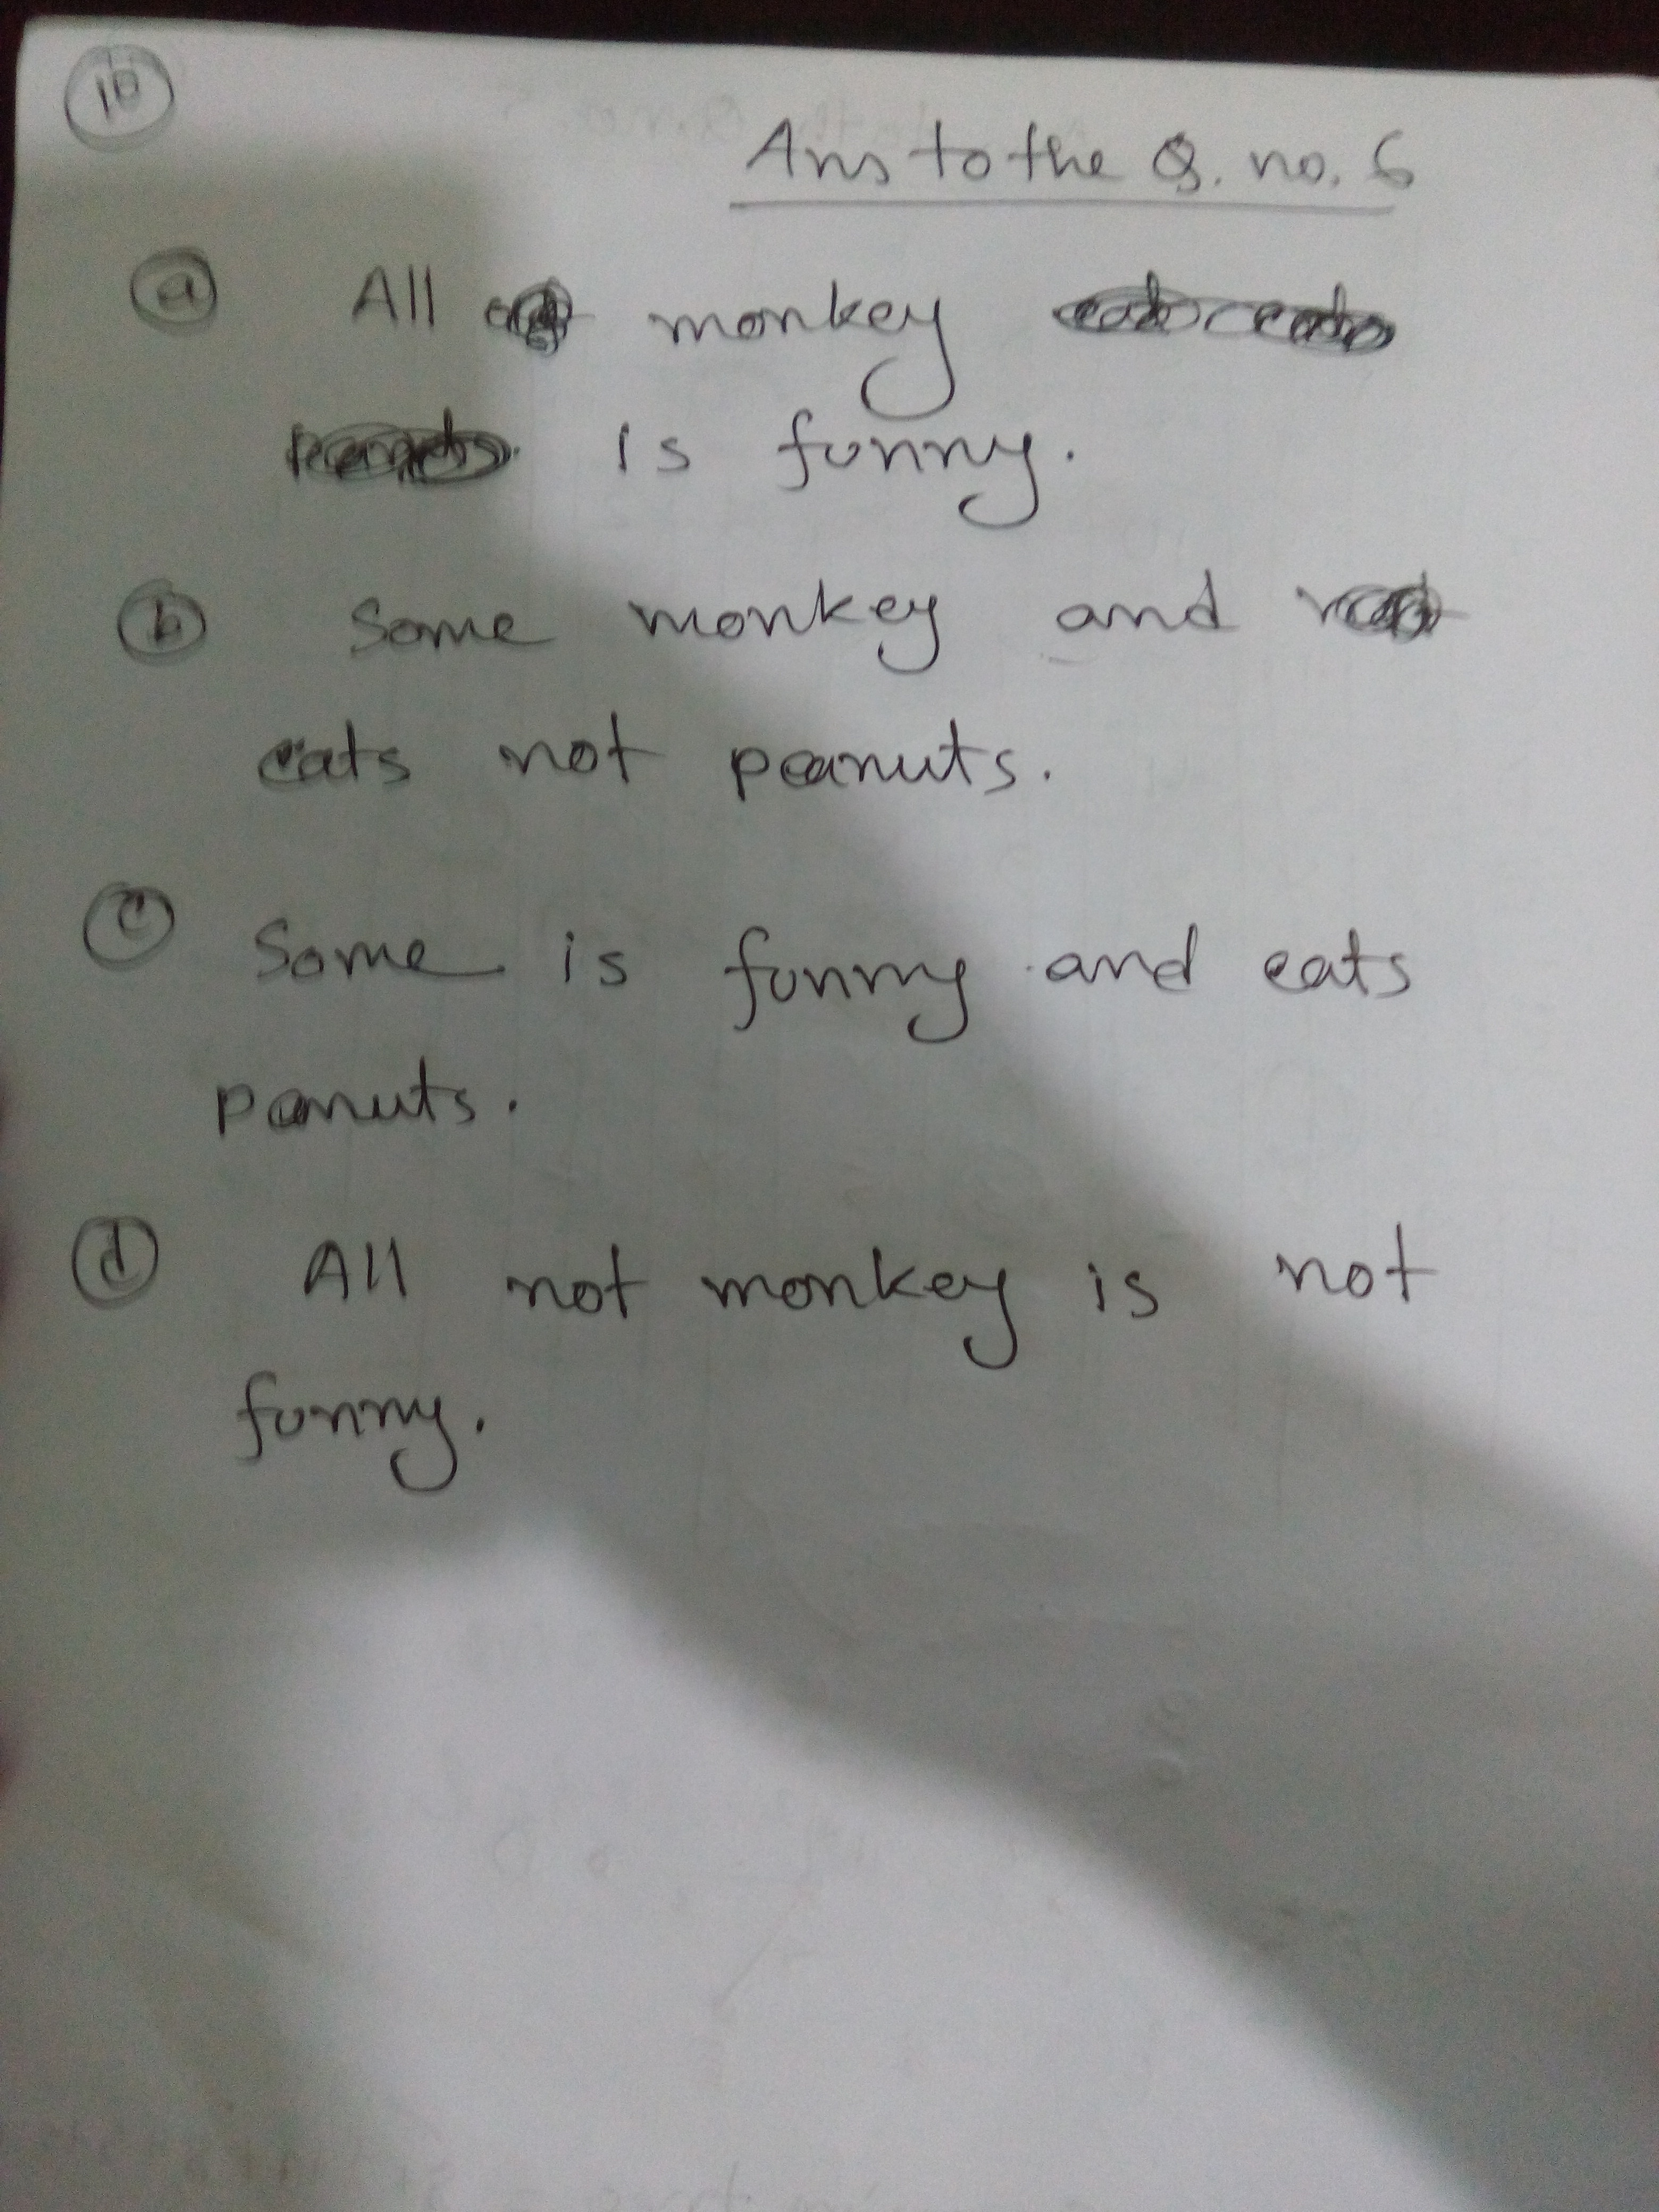 10
Ans to the Q. no. 6
a All monkey
is funny.
b Some monkey and
eats not peanuts.
c Some is funny and eats
panuts.
d All not monkey is not
funny.